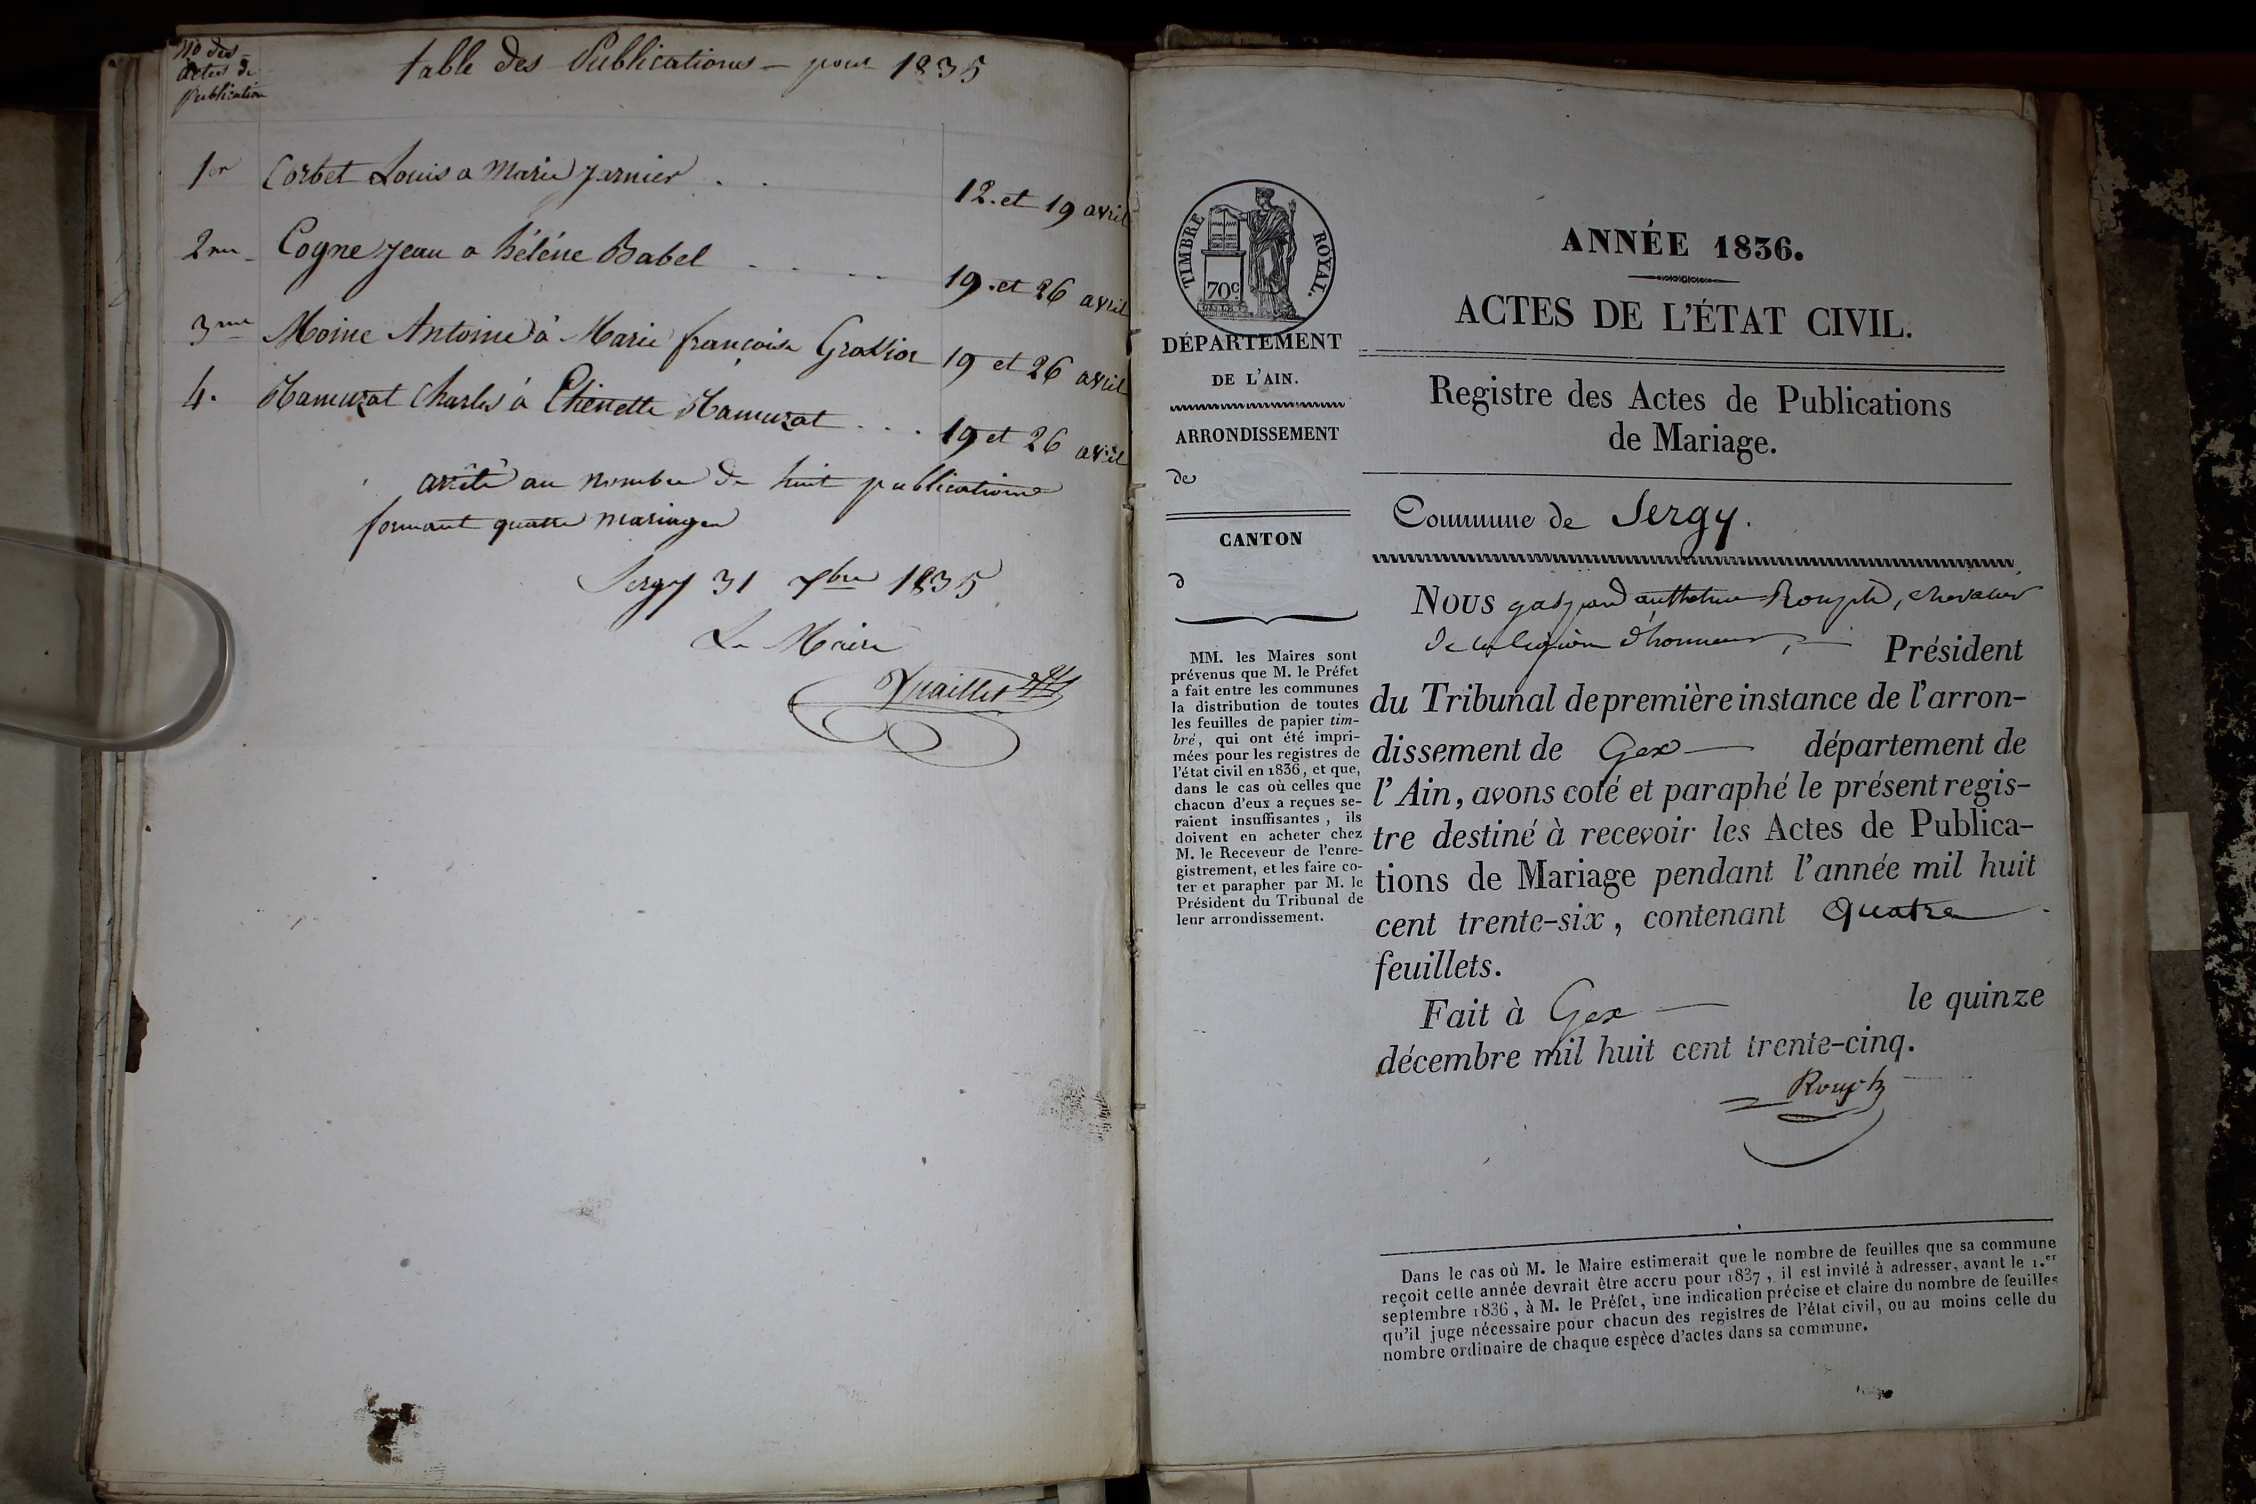 No des
actes de
publication
table des Publications - pour 1835
1er Corbet Louis a Marie Jarnier . . 12. et 19 avril
2me Cogne Jean a héléne Babel . . . . 19. et 26 avril
3me Moine Antoine à Marie françoise 19 et 26 avril
4. Charles à . . . 19 et 26 avril
arrêté au nombre de huit publications
formant quatre mariages
Sergy 31 xbre 1835
Le Maire
TIMBRE ROYAL.
70c
DÉPARTEMENT
DE L'AIN.
ARRONDISSEMENT
de
CANTON
d
MM. les Maires sont
prévenus que M. le Préfet
a fait entre les communes
la distribution de toutes
les feuilles de papier tim-
bré, qui ont été impri-
mées pour les registres de
l'état civil en 1836, et que,
dans le cas où celles que
chacun d'eux a reçues se-
raient insuffisantes, ils
doivent en acheter chez
M. le Receveur de l'enre-
gistrement, et les faire co-
ter et parapher par M. le
Président du Tribunal de
leur arrondissement.
ANNÉE 1836.
ACTES DE L'ÉTAT CIVIL.
Registre des Actes de Publications
de Mariage.
Commune de Sergy.
NOUS gaspard anthelme Rouph, chevalier
de la legion d'honneur, — Président
du Tribunal de première instance de l'arron-
dissement de Gex — département de
l'Ain, avons coté et paraphé le présent regis-
tre destiné à recevoir les Actes de Publica-
tions de Mariage pendant l'année mil huit
cent trente-six, contenant quatre
feuillets.
Fait à Gex — le quinze
décembre mil huit cent trente-cinq.
Dans le cas où M. le Maire estimerait que le nombre de feuilles que sa commune
reçoit cette année devrait être accru pour 1837, il est invité à adresser, avant le 1.er
septembre 1836, à M. le Préfet, une indication précise et claire du nombre de feuilles
qu'il juge nécessaire pour chacun des registres de l'état civil, ou au moins celle du
nombre ordinaire de chaque espèce d'actes dans sa commune.